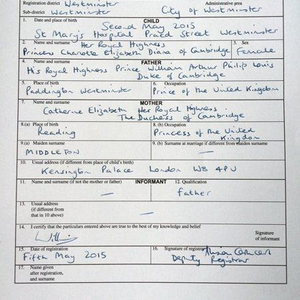 Registration district Westminster
Administrative area
Sub-district Westminster
City of Westminster
1. Date and place of birth
CHILD
Second May 2015
St Mary's Hospital Praed Street Westminster
2. Name and surname
Her Royal Highness
Princess Charlotte Elizabeth Diana of Cambridge
3. Sex
Female
4. Name and surname
FATHER
His Royal Highness Prince William Arthur Philip Louis
Duke of Cambridge
5. Place of birth
Paddington Westminster
6. Occupation
Prince of the United Kingdom
7. Name and surname
MOTHER
Catherine Elizabeth Her Royal Highness
The Duchess of Cambridge
8.(a) Place of birth
Reading
8.(b) Occupation
Princess of the United
Kingdom
9.(a) Maiden surname
MIDDLETON
9.(b) Surname at marriage if different from maiden surname
10. Usual address (if different from place of child's birth)
Kensington Palace London W8 4PU
INFORMANT
11. Name and surname (if not the mother or father)
12. Qualification
Father
13. Usual address
(if different from
that in 10 above)
14. I certify that the particulars entered above are true to the best of my knowledge and belief
Signature
of informant
15. Date of registration
Fifth May 2015
16. Signature of registrar
Deputy Registrar
17. Name given
after registration,
and surname